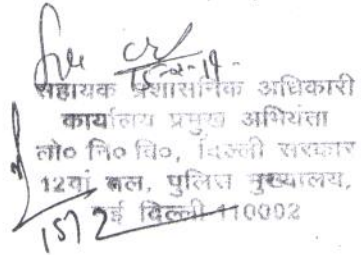 15-2-19
सहायक प्रशासनिक अधिकारी
कार्यालय प्रमुख अभियंता
लो० नि० वि०, दिल्ली सरकार
12वां तल, पुलिस मुख्यालय,
नई दिल्ली-110002